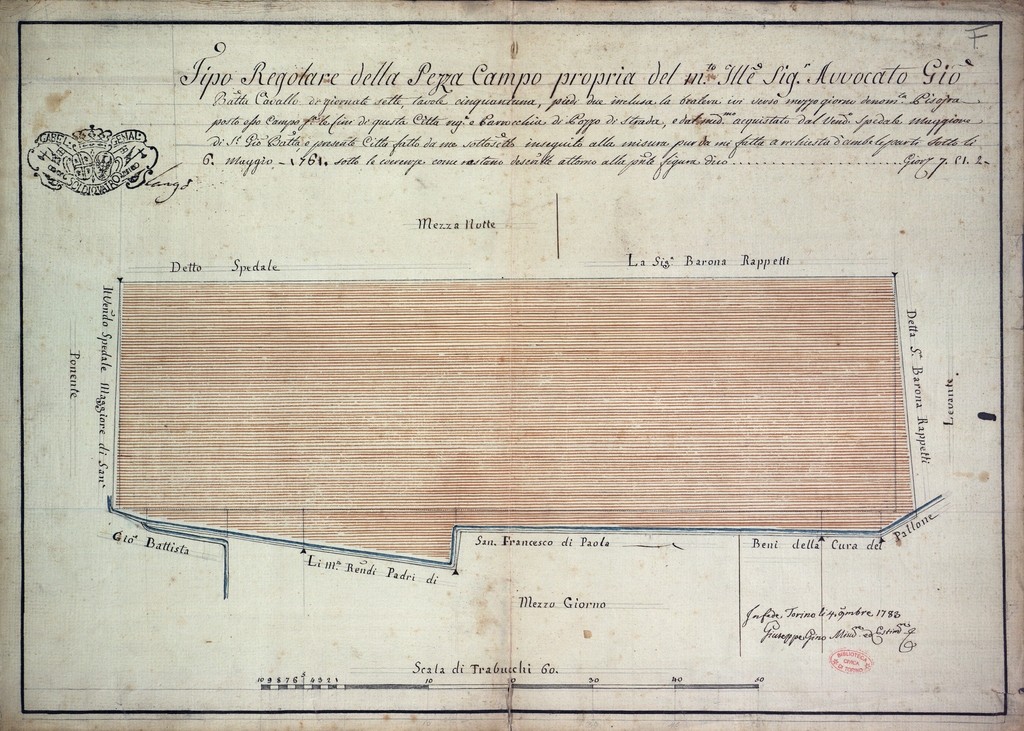 F
Tipo Regolare della Pezza Campo propria del m.to Ill.e Sig.r Avvocato Gio
Batta Cavallo de giornate sette, tavole cinquantuna, piedi due inclusa la bealera ivi verso mezzo giorno denom.ta
posto esso Campo le fine di questa Città e Parocchia di Pozzo di strada, e dal acquistato dal Vend.o Spedale Maggiore
di S.t Gio Batta e presente Città fatto da me sottoscitto inseguito alla misura pur da me fatta a richiesta d'ambe le parti sotto li
6. Maggio - 1761. sotto le coerenze come restano descritte attorno alla figura dico ........ Gior.e 7. 51. 2-
GABEL GENAL
SOLDI QVATRO
Mezza Notte
Detto Spedale
La Sig.a Barona Rappetti
Il Vendo Spedale Maggiore di San
Ponente
Detta S.a Barona Rappetti
Levante
Gio Battista
Li M. Rendi Padri di
San. Francesco di Paola
Beni della Cura del
Pallone
Mezzo Giorno
In fede Torino li 4. 9mbre 1783
Giuseppe Gino
BIBLIOTECA
CIVICA
DI TORINO
Scala di Trabucchi 60.
10 9 8 7 6 5 4 3 2 1 10 20 30 40 50